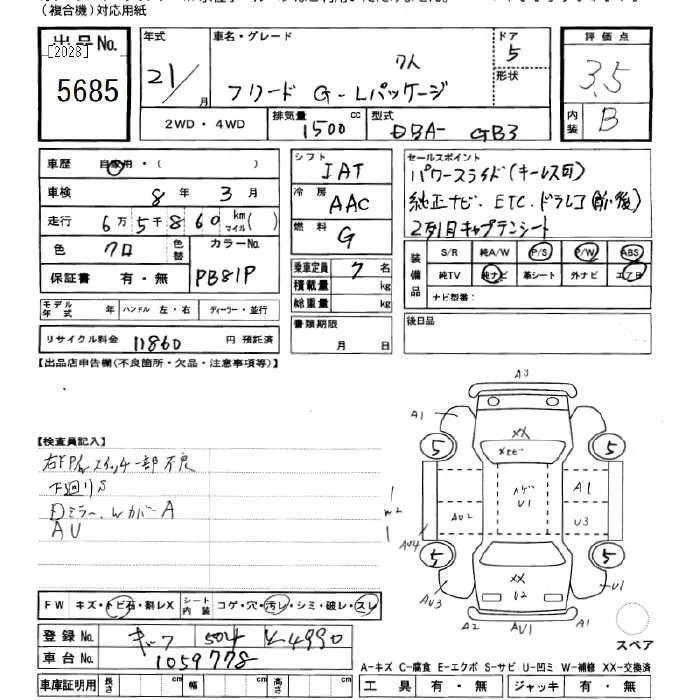 (複合機)対応用紙
出品No.
[2028]
5685
年式
21/
月
車名・グレード
7人
フリード G-Lパッケージ
ドア
5
形状
2WD・4WD
排気量
1500
cc
型式
DBA- GB3
評価点
3.5
内装
B
車歴
自家用・( )
車検
8 年 3 月
走行
6万5千860 km マイル( )
色
クロ
色替
カラーNo.
PB81P
保証書
有・無
モデル年式
年
ハンドル 左・右
ディーラー・並行
リサイクル料金
11860
円 預託済
シフト
IAT
冷房
AAC
燃料
G
乗車定員
7 名
積載量
kg
総重量
kg
書類期限
月 日
セールスポイント
パワースライド(キーレス可)
純正ナビ、ETC、ドラレコ(前後)
2列目キャプテンシート
装備品
S/R 純A/W P/S P/W ABS
純TV 純ナビ 革シート 外ナビ エアB
ナビ型番:
後日品
【出品店申告欄(不良箇所・欠品・注意事項等)】
【検査員記入】
右F P/W スイッチ一部不良
下廻りS
Dミラー、WカバーA
AU
FW キズ・トビ石・割レX
シート内装 コゲ・穴・汚レ・シミ・破レ・スレ
登録No.
504 4990
車台No.
1059778
車庫証明用 長さ cm 幅 cm 高さ cm
A3
A1
XX
5
5
U1
A1
W2
AU2
U3
AU4
5
5
XX
U2
AU3
U1
A2
AU1
A2
スペア
A-キズ C-腐食 E-エクボ S-サビ U-凹ミ W-補修 XX-交換済
工具 有・無 ジャッキ 有・無